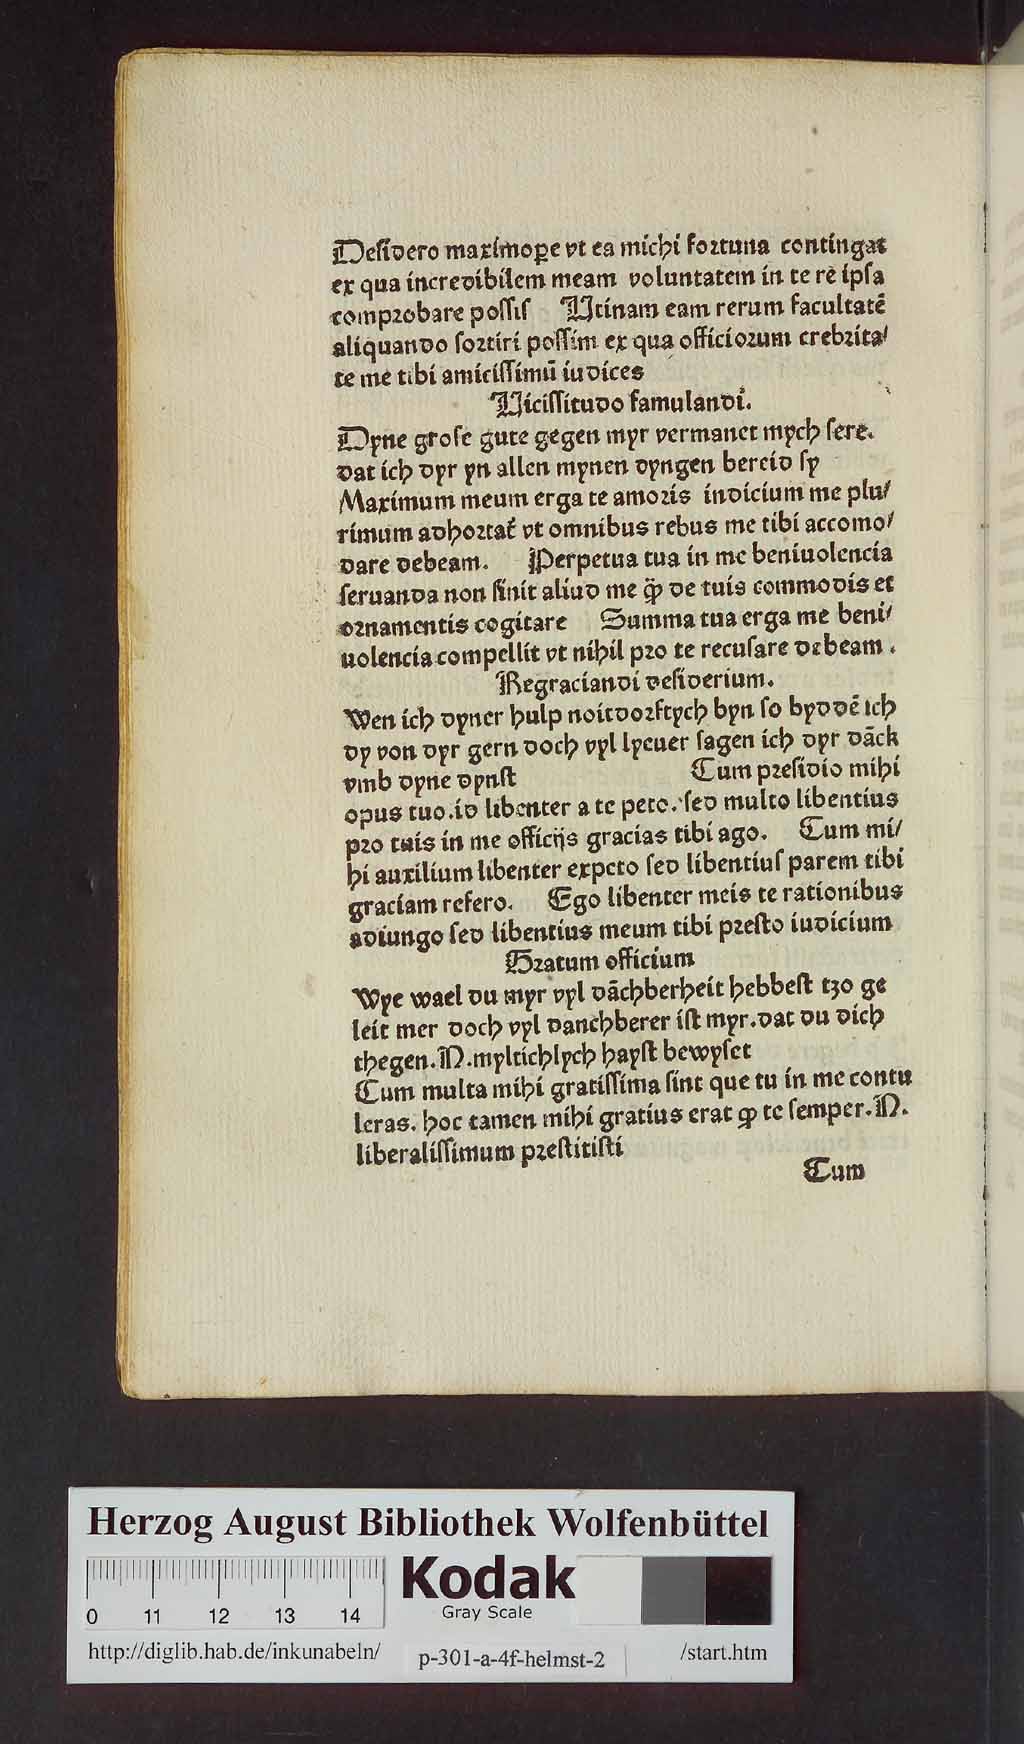 Deſidero maximoꝑe vt ea michi foꝛtuna contingat
ex qua incredibilem meam voluntatem in te rē ipſa
compꝛobare poſſiſ Utinam eam rerum facultatē
aliquando ſoꝛtiri poſſim ex qua officioꝛum crebꝛita/
te me tibi amiciſſimū iudices
Uiciſſitudo famulandi.
Dyne groſe gute gegen myr vermanet mych ſere.
dat ich dyr yn allen mynen dyngen bereid ſy
Maximum meum erga te amoꝛis indicium me plu/
rimum adhoꝛtat᷑ vt omnibus rebus me tibi accomo/
dare debeam. Perpetua tua in me beniuolencia
ſeruanda non ſinit aliud me ꝙ̄ de tuis commodis et
oꝛnamentis cogitare Summa tua erga me beni/
uolencia compellit vt nihil pꝛo te recuſare debeam.
Regraciandi deſiderium.
Wen ich dyner hulp noitdoꝛftych byn ſo byddē ich
dy von dyr gern doch vyl lyeuer ſagen ich dyr dāck
vmb dyne dynſt Cum pꝛeſidio mihi
opus tuo.id libenter a te peto. ſed multo libentius
pꝛo tuis in me officijs gracias tibi ago. Cum mi/
hi auxilium libenter expeto ſed libentiuſ parem tibi
graciam refero. Ego libenter meis te rationibus
adiungo ſed libentius meum tibi pꝛeſto iudicium
Gꝛatum officium
Wye wael du myr vyl dāchberheit hebbeſt tzo ge
leit mer doch vyl danchberer iſt myr.dat du dich
thegen.N.myltichlych hayſt bewyſet
Cum multa mihi gratiſſima ſint que tu in me contu
leras. hoc tamen mihi gratius erat ꝙ te ſemper.N.
liberaliſſimum pꝛeſtitiſti
Cum
Herzog August Bibliothek Wolfenbüttel
0 11 12 13 14
Kodak
Gray Scale
http://diglib.hab.de/inkunabeln/ p-301-a-4f-helmst-2 /start.htm